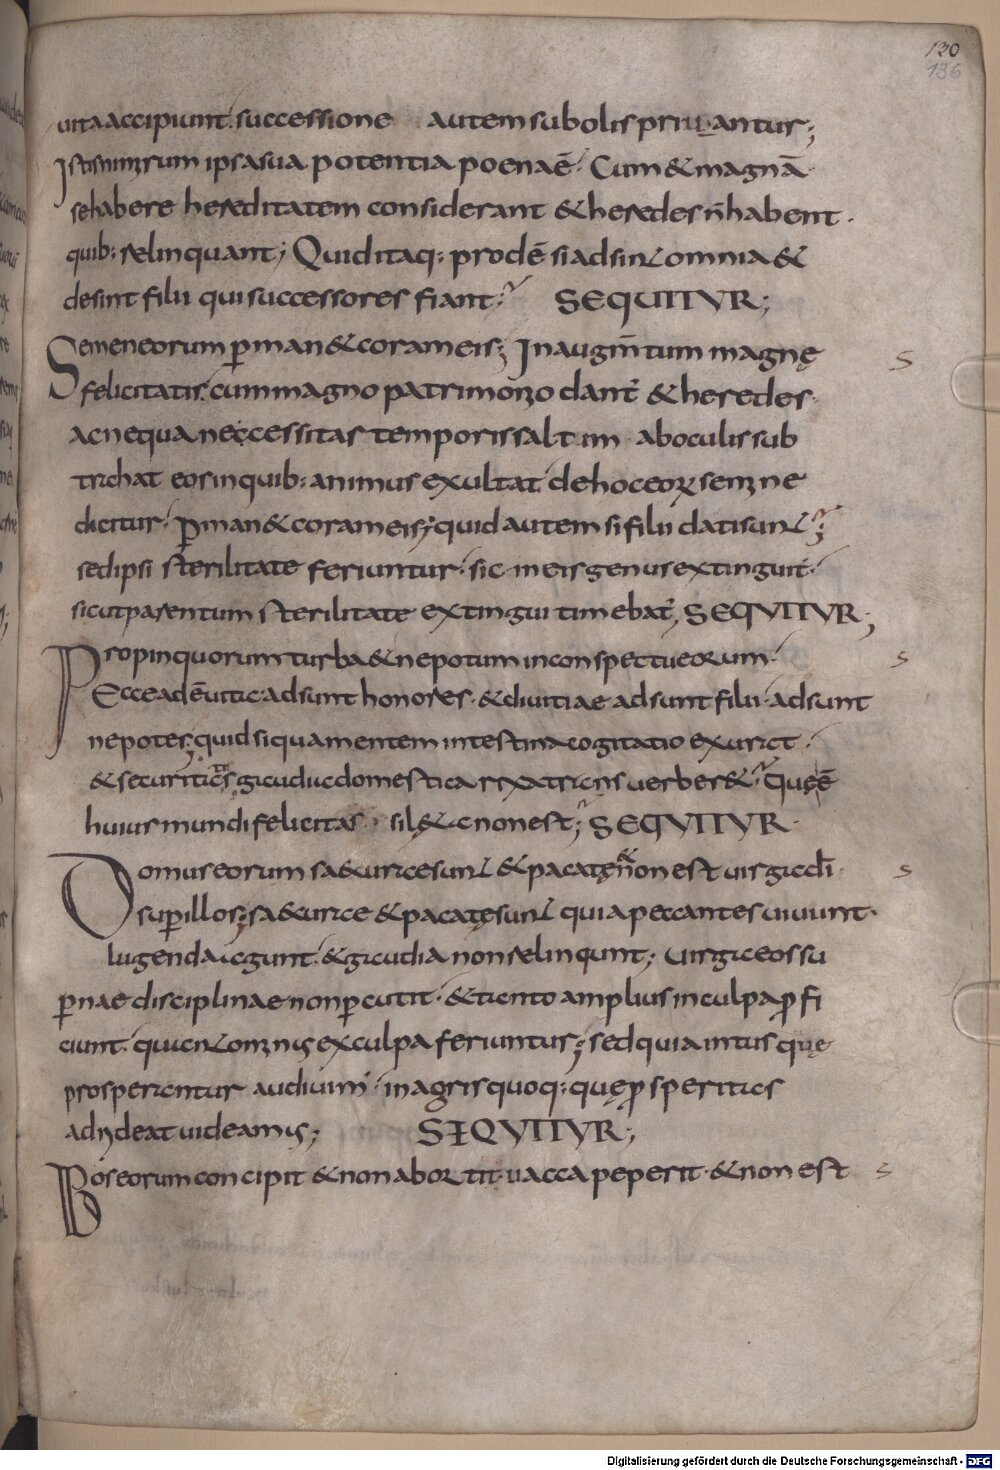 130
136
uita accipiunt. successione autem subolis priuantur;
Istis nimirum ipsa sua potentia poena ē. Cum & magnā
se habere hereditatem considerant & heredes n̄ habent.
quib: relinquant; Quid itaq: prodē si adsint omnia &
desint filii qui successores fiant. SEQUITVR;
Semen eorum ꝑman& coram eis; In augm̄tum magnę
felicitatis. cum magno patrimonio dant̄ & heredes.
ac ne qua neccessitas temporis saltim ab oculis sub
trahat eos in quib: animus exultat. de hoc eoꝝ semine
dicitur. ꝑman& coram eis; quid autem si filii dati sunt
sed ipsi sterilitate feriuntur. sic in eis genus extinguit̄.
sicut parentum sterilitate extingui timebat̄; SEQVITVR;
Propinquorum turba & nepotum in conspectu eorum.
Ecce adē uita. adsunt honores. & diuitiae adsunt filii. adsunt
nepotes. quid si quam mentem intestina cogitatio exurat.
& securitatis gaudia domestica rixa triciis uerber&. Quę ē
huius mundi felicitas si l& a non est; SEQVITVR.
Domus eorum saecurae sunt & pacatę & non est uirga dī.
sup illos; saecurae & pacatę sunt quia peccantes uiuunt.
lugenda agunt. & gaudia non relinqunt; Uirga eos su
ꝑnae disciplinae non ꝑcutit. & tanto amplius in culpa ꝓfi
ciunt. quanto minus ex culpa feriuntur; sed quia intus quę
prosperentur audiuim̄. in agris quoq: quę ꝓsperitas
adrideat uideamus; SEQVITVR;
Bos eorum concipit & non abortit. uacca peperit. & non est
Digitalisierung gefördert durch die Deutsche Forschungsgemeinschaft - DFG